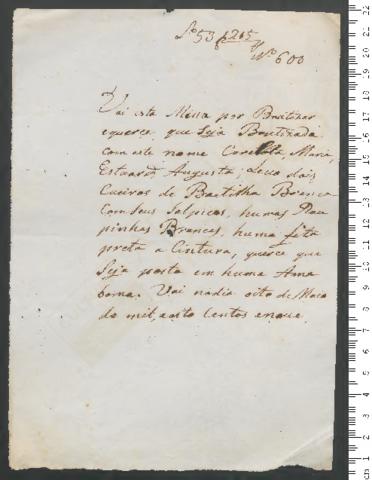 Lo 53 f 205
No 600
Vai esta Minina por Bautizar
e querce que Seja Bautizada
com este nome Maria,
Augusta, Leva dois
Cueiros de Baetilha Branca
Com Seus Salpicos, humas Rou
pinhas Brancas, huma fita
preta a Cintura, querce que
Seja posta em huma Ama
boma. Vai nadia oito de Maco
do mil, eoito Centos enove